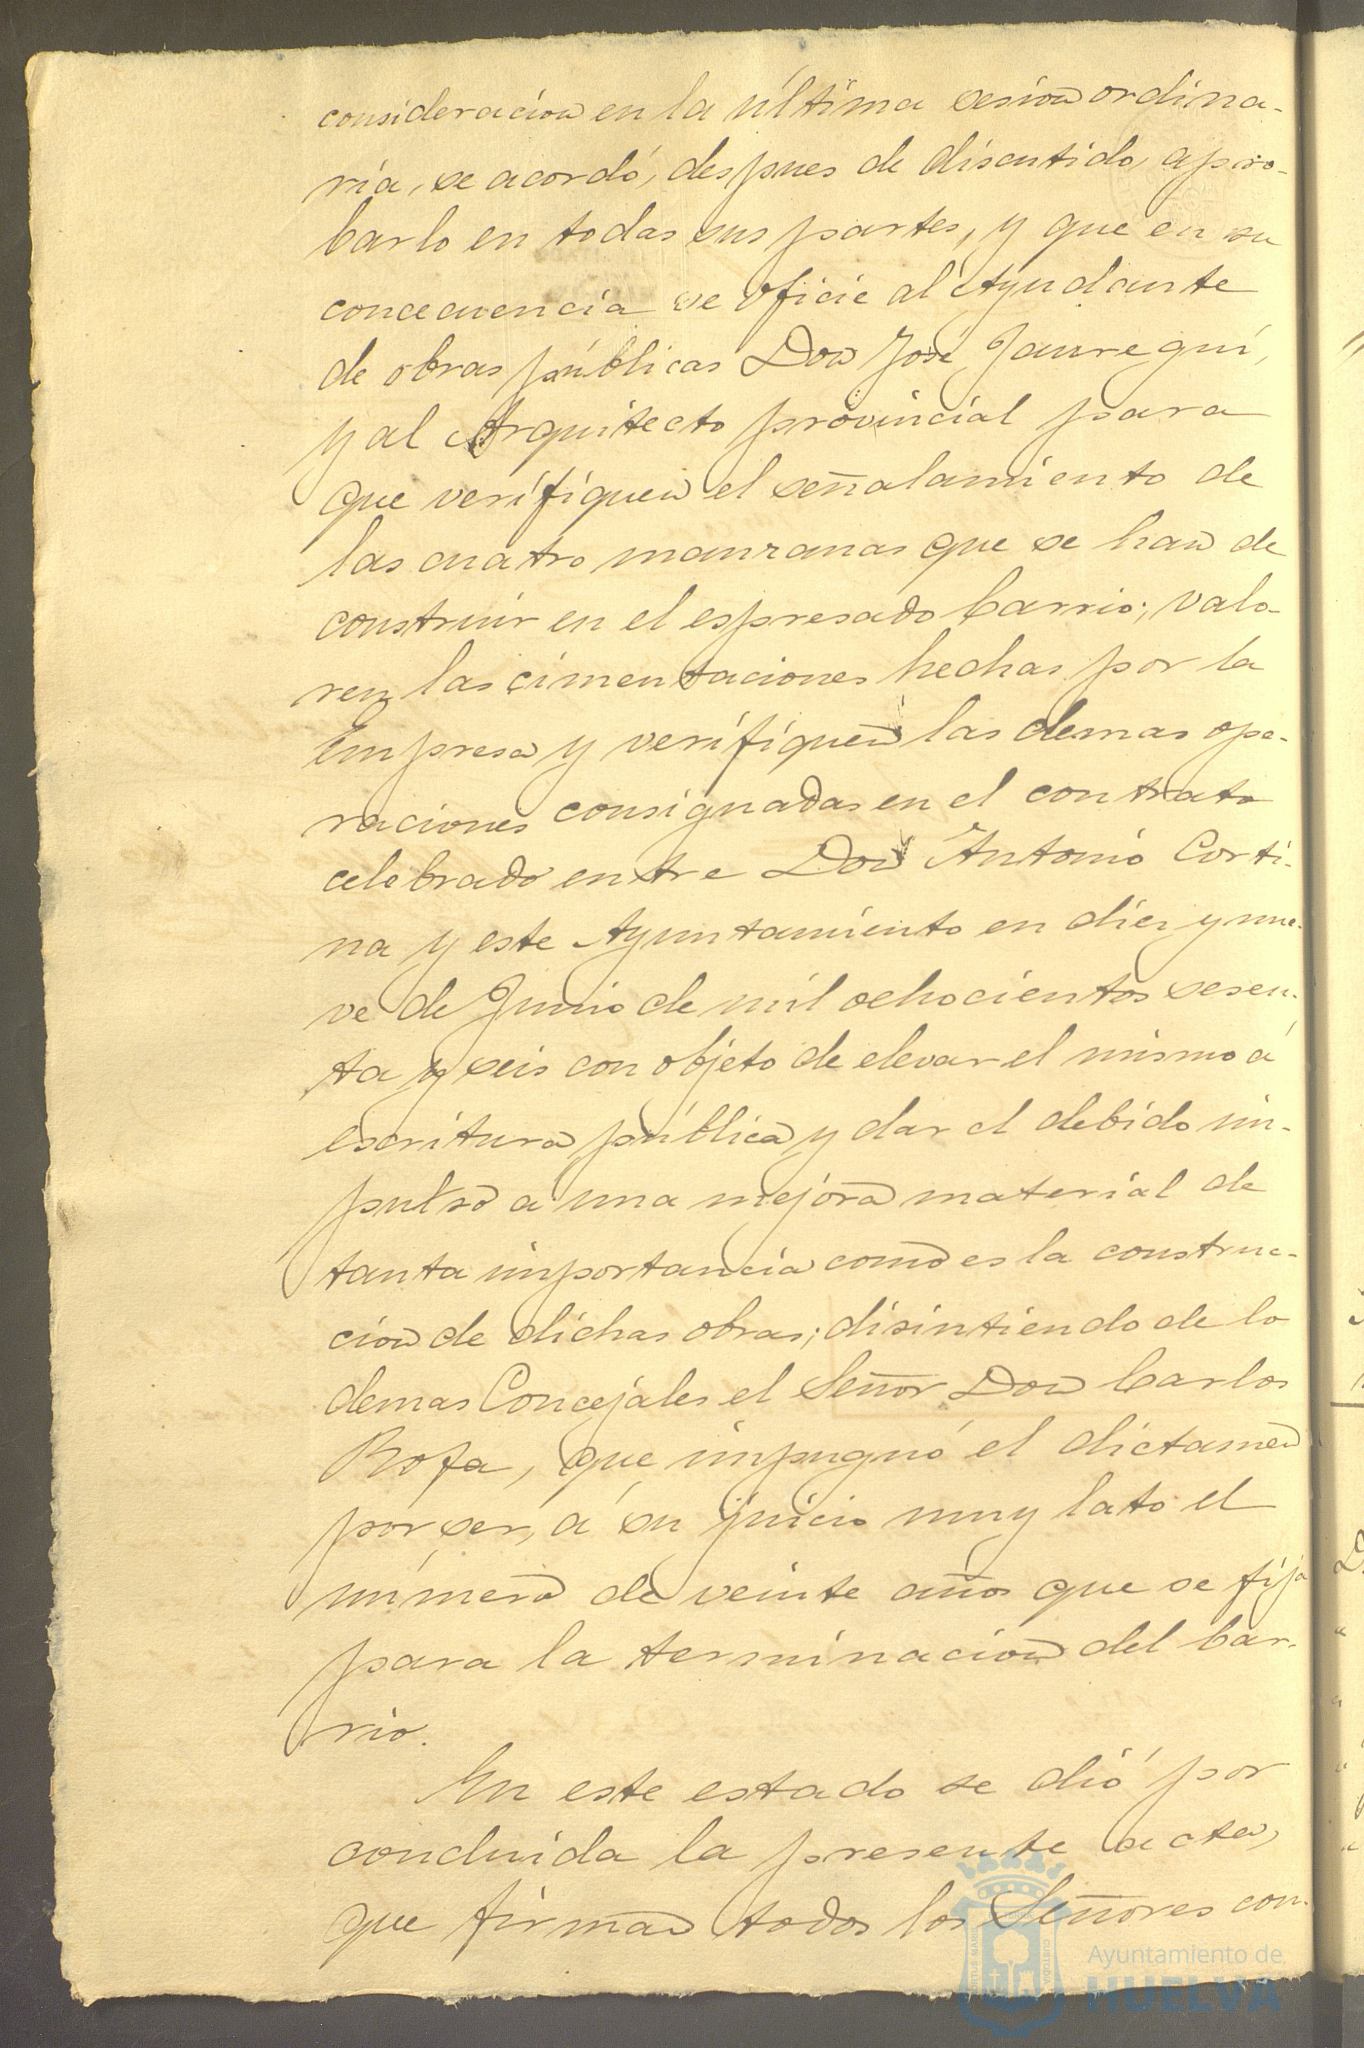 consideracion en la última sesion ordina-
ria, se acordó, despues de discutido, apro-
barlo en todas sus partes, y que en su
concecuencia se oficie al Ayudante
de obras públicas Don José Jauregui,
y al Arquitecto provincial para
que verifiquen el señalamiento de
las cuatro manzanas que se han de
construir en el espresado barrio; valo-
ren las cimentaciones hechas por la
Empresa y verifiquen las demas ope-
raciones consignadas en el contrato
celebrado entre Don Antonio Corti-
na y este Ayuntamiento en diez y nue-
ve de Junio de mil ochocientos sesen-
ta y seis con objeto de elevar el mismo á
escritura pública y dar el debido im-
pulso a una mejora material de
tanta importancia como es la construc-
cion de dichas obras; disintiendo de lo
demas Concejales el Señor Don Carlos
que impugnó el dictamen
por ser, á su juicio muy lato el
número de veinte años que se fija
para la terminacion del bar-
rio.
En este estado se dió por
concluida la presente acta,
que firman todos los Señores con-
Ayuntamiento de
HUELVA